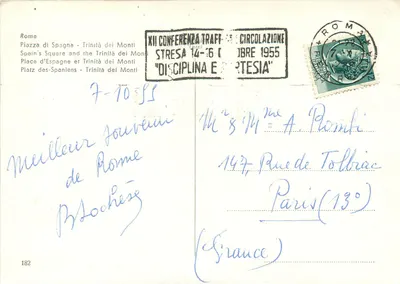 Roma
Piazza di Spagna - Trinità dei Monti
Spain's Square and the Trinità dei Monti
Place d'Espagne et Trinità dei Monti
Platz des Spaniens - Trinità dei Monti
XII CONFERENZA TRAFF CIRCOLAZIONE
STRESA 14-16 OBRE 1955
"DISCIPLINA E RTESIA"
ROM
7-10-55
Meilleur souvenir
de Rome
Mr & Mme A.
147, Rue de Tolbiac
Paris (13°)
(France)
182